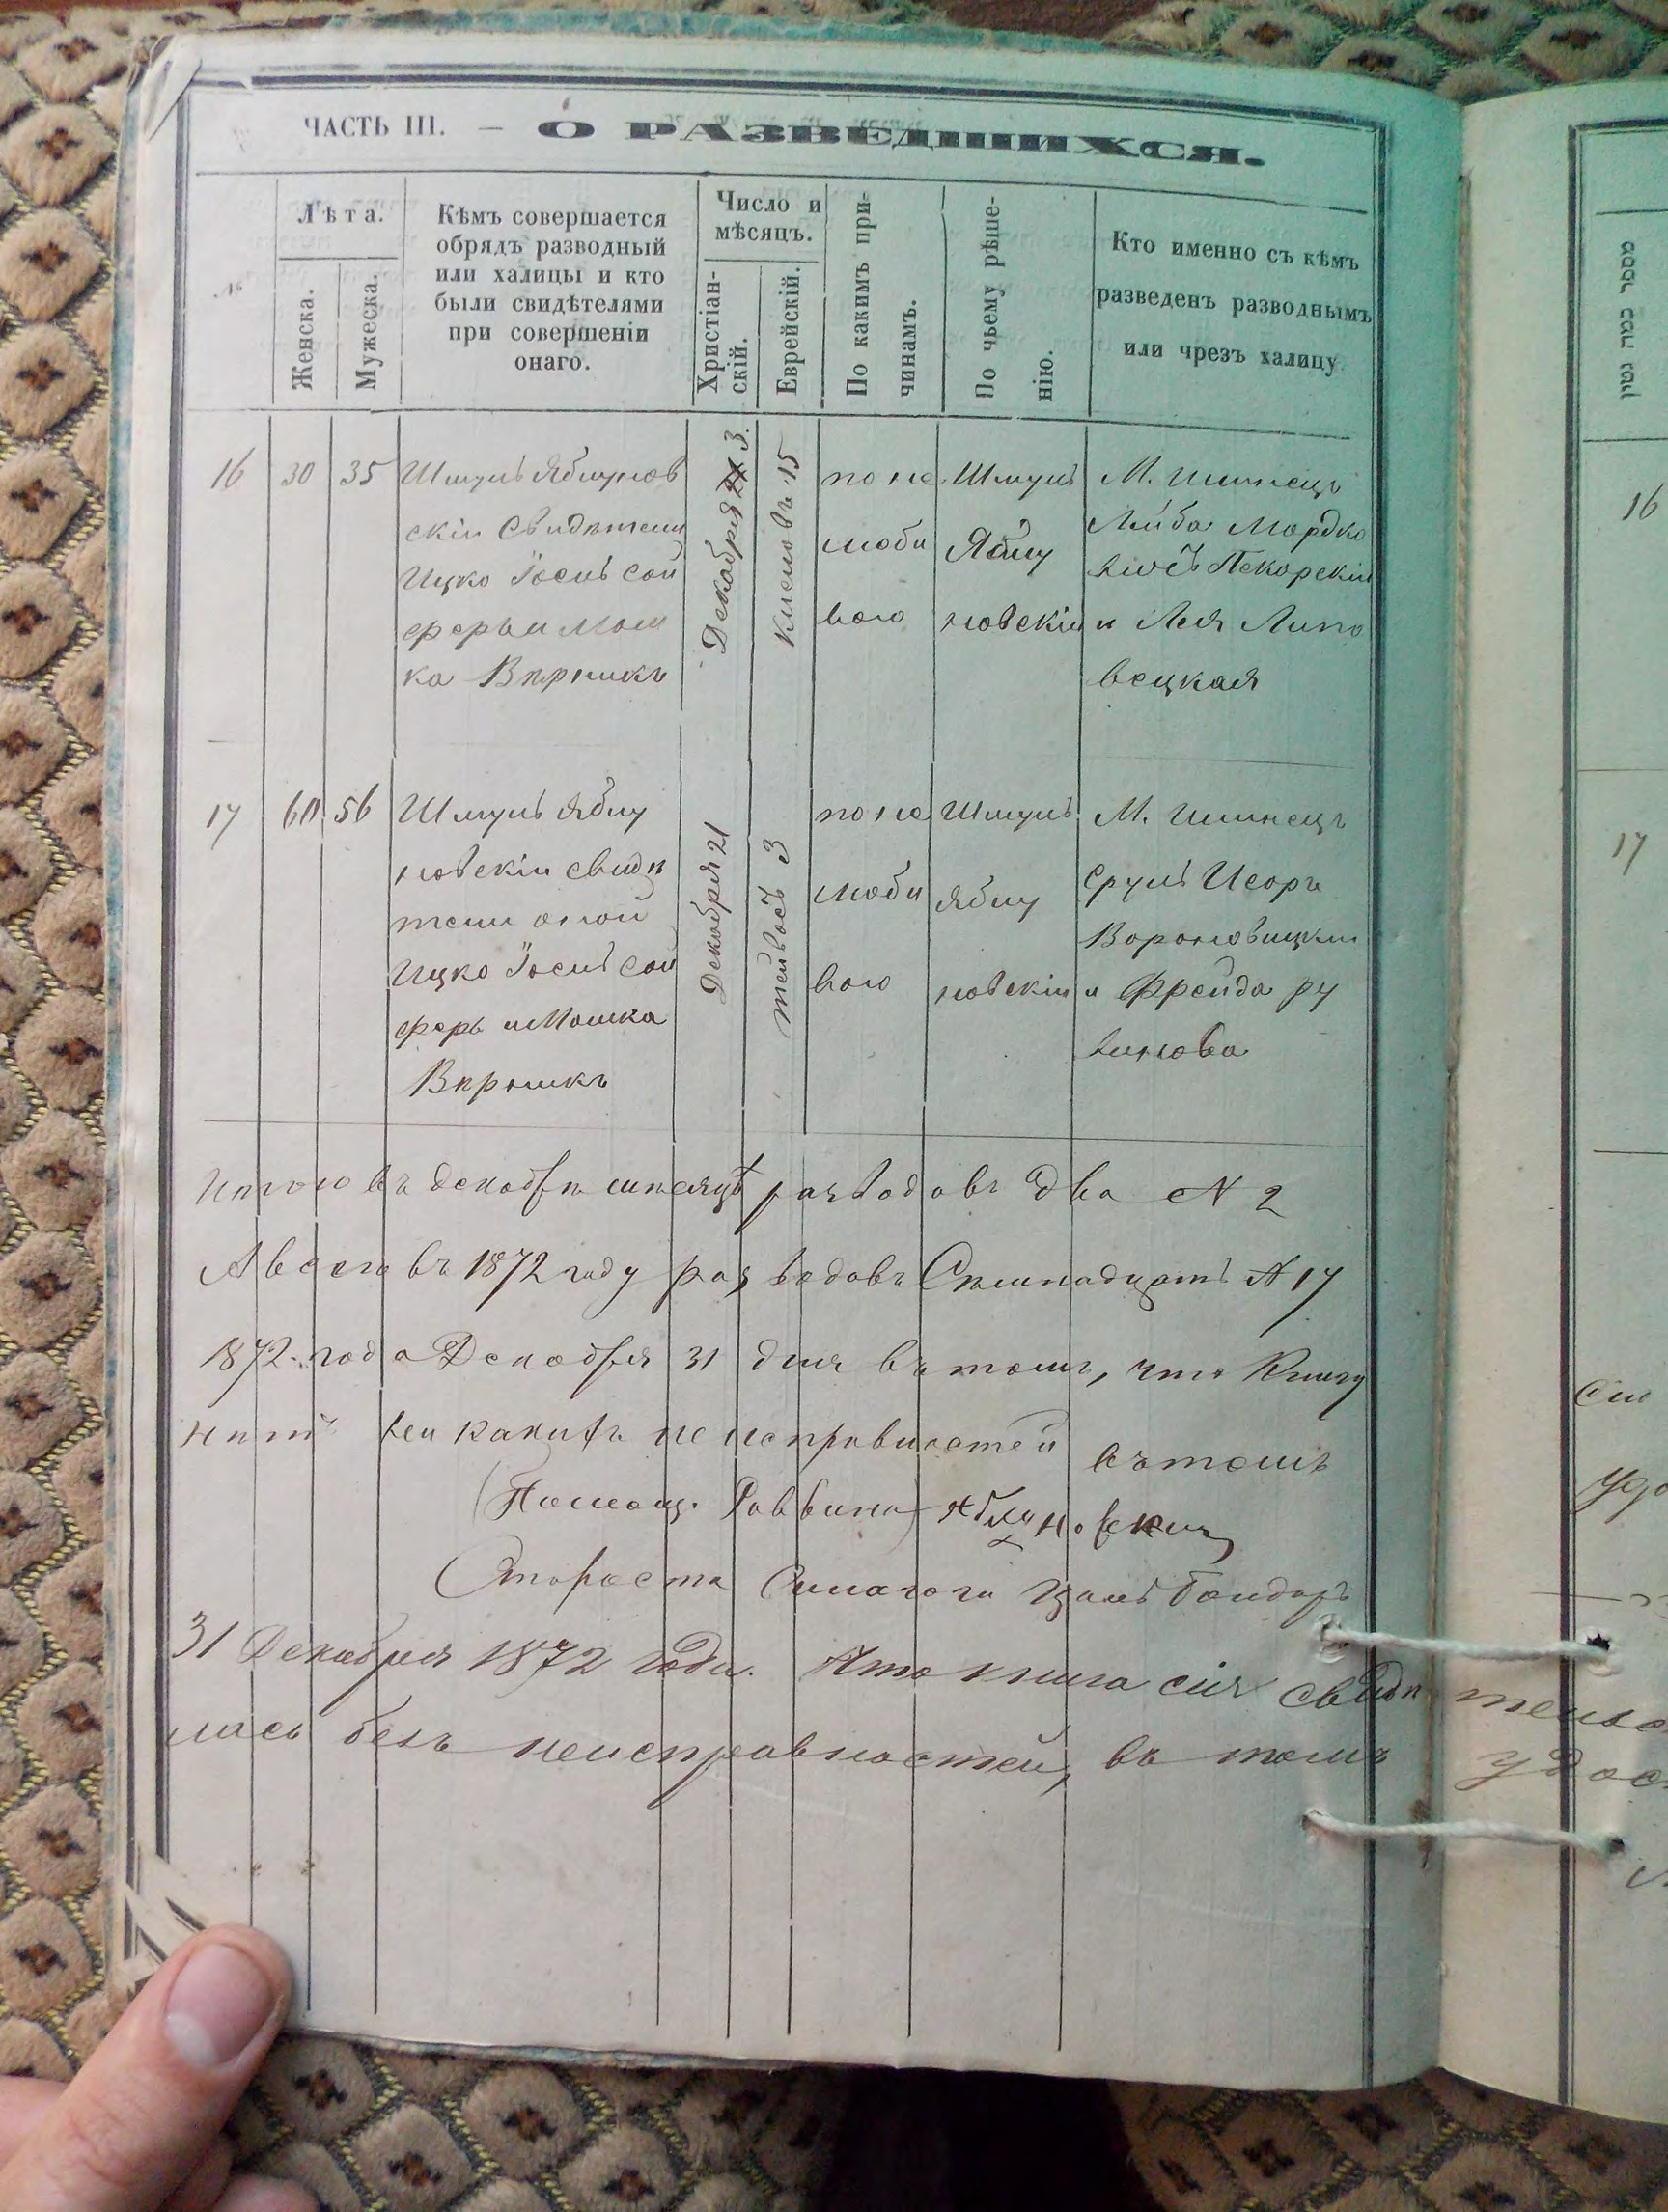 ЧАСТЬ III. — О РАЗВЕДШИХСЯ.
№
Лѣта.
Женска.
Мужеска.
Кѣмъ совершается
обрядъ разводный
или халицы и кто
были свидѣтелями
при совершеніи
онаго.
Число и
мѣсяцъ.
Христіан-
скій.
Еврейскій.
По какимъ при-
чинамъ.
По чьему рѣше-
нію.
Кто именно съ къмъ
разведенъ разводнымъ
или чрезъ халицу
16
30
35
Шмуль Яблунов
скій Свидѣтели
Ицко Іось Сой
феръ и Мош
ка
Декабря 3.
Кислевъ 15
по не
люби
вою
Шмуль
Яблу
новскій
М.
Лейба Мордко
Пекарскій
и Лея Липо
вецкая
17
60
56
Шмуль Яблу
новскій свидѣ
тели оной
Ицко Іось Сой
феръ и Мошка
Декабря 21
тейвесъ 3
по не
люби
вою
Шмуль
Яблу
новскій
М.
Сруль
Вороновицкій
и Фрейда
Итого въ декабрѣ мѣсяцѣ разводовъ два № 2
А всего въ 1872 году разводовъ Семнадцать № 17
1872 года Декабря 31 дня въ томъ, что Книгу
неисправностей въ томъ
Помощ. Раввина Яблуновскій
Староста Синагоги Бондарь
31 Декабря 1872 года. Что книга сія свидѣ тельс
лась безъ неисправностей, въ томъ удос
מספר כמה גטין
16
17